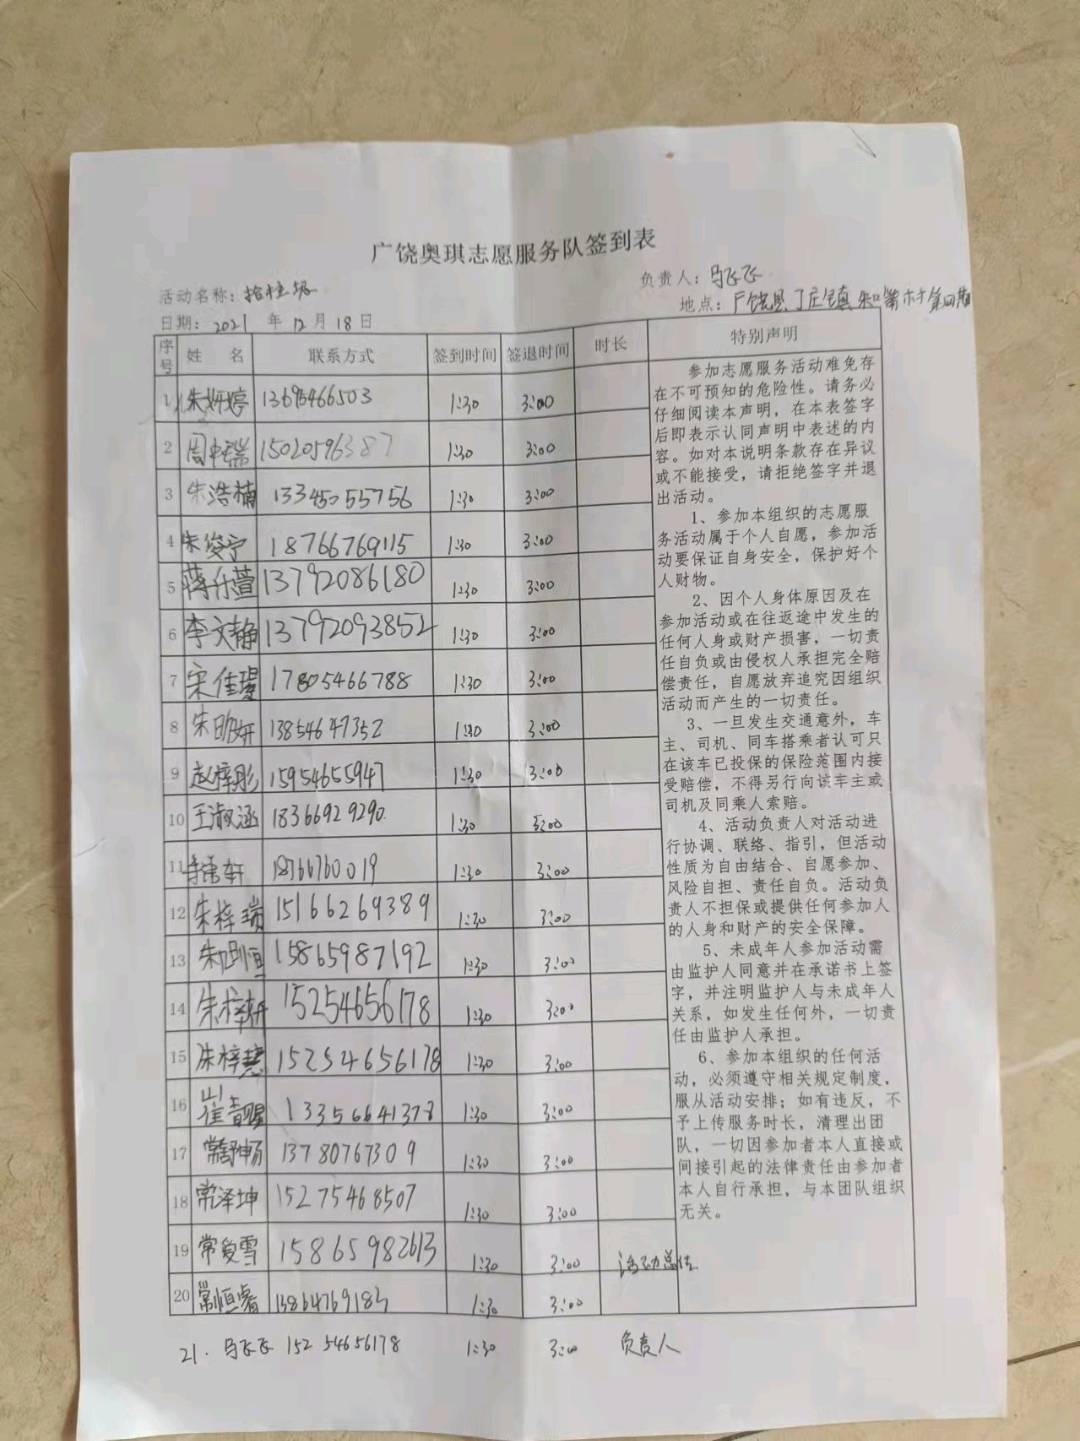 广饶奥琪志愿服务队签到表
活动名称：捡垃圾 负责人：马飞飞
日期：2021 年 12 月 18 日 地点：广饶县丁庄镇
序号 姓 名 联系方式 签到时间 签退时间 时长 特别声明
1 朱妍婷 13695466503 1:30 3:00
2 15020596387 1:30 3:00
3 朱浩楠 13345055756 1:30 3:00
4 朱俊宁 18766769115 1:30 3:00
5 13792086180 1:30 3:00
6 李文静 13792093852 1:30 3:00
7 宋佳 17805466788 1:30 3:00
8 朱 妍 13854647352 1:30 3:00
9 赵梓彤 15954655947 1:30 3:00
10 王淑涵 18366929290 1:30 3:00
11 轩 18766760019 1:30 3:00
12 朱梓瑞 15166269389 1:30 3:00
13 朱 恒 15865987192 1:30 3:00
14 朱梓轩 15254656178 1:30 3:00
15 朱梓慧 15254656178 1:30 3:00
16 崔 13356641378 1:30 3:00
17 常舒畅 13780767309 1:30 3:00
18 常泽坤 15275468507 1:30 3:00
19 常爱雪 15865982613 1:30 3:00 活动总结
20 常恒睿 13864769183 1:30 3:00
21. 马飞飞 152 54656178 1:30 3:00 负责人
参加志愿服务活动难免存
在不可预知的危险性。请务必
仔细阅读本声明，在本表签字
后即表示认同声明中表述的内
容。如对本说明条款存在异议
或不能接受，请拒绝签字并退
出活动。
1、参加本组织的志愿服
务活动属于个人自愿，参加活
动要保证自身安全，保护好个
人财物。
2、因个人身体原因及在
参加活动或在往返途中发生的
任何人身或财产损害，一切责
任自负或由侵权人承担完全赔
偿责任，自愿放弃追究因组织
活动而产生的一切责任。
3、一旦发生交通意外，车
主、司机、同车搭乘者认可只
在该车已投保的保险范围内接
受赔偿，不得另行向该车主或
司机及同乘人索赔。
4、活动负责人对活动进
行协调、联络、指引，但活动
性质为自由结合、自愿参加、
风险自担、责任自负。活动负
责人不担保或提供任何参加人
的人身和财产的安全保障。
5、未成年人参加活动需
由监护人同意并在承诺书上签
字，并注明监护人与未成年人
关系，如发生任何外，一切责
任由监护人承担。
6、参加本组织的任何活
动，必须遵守相关规定制度，
服从活动安排；如有违反，不
予上传服务时长，清理出团
队，一切因参加者本人直接或
间接引起的法律责任由参加者
本人自行承担，与本团队组织
无关。